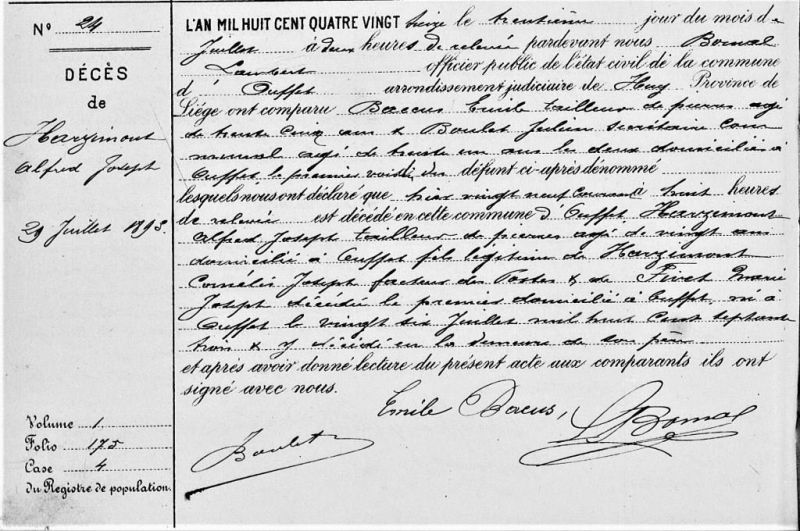 N° 24
DÉCÈS
de
Harzimont
Alfred Joseph
29 Juillet 1893.
Volume 1.
Folio 175
Case 4
du Registre de population.
L'AN MIL HUIT CENT QUATRE VINGT treize le trentième jour du mois de
Juillet à deux heures de relevée pardevant nous Bomal
Lambert officier public de l'état civil de la commune
d' Ouffet arrondissement judiciaire de Huy Province de
Liége ont comparu Baccus Emile tailleur de pierres agé
de trente cinq ans & Boulet Julien secrétaire com
munal agé de trente un ans les deux domiciliés à
Ouffet, le premier voisin du défunt ci-après dénommé
lesquels nous ont déclaré que hier vingt neuf courant à huit heures
de relevée est décédé en cette commune d' Ouffet Harzimont
Alfred Joseph tailleur de pierres agé de vingt ans
domicilié à Ouffet fils légitime de Harzimont
Cornelis Joseph facteur des Postes & de Pivet Marie
Joseph décédée le premier domicilié à Ouffet, né à
Ouffet le vingt six Juillet mil huit cent septante
trois & y décédé en la demeure de son père
et après avoir donné lecture du présent acte aux comparants ils ont
signé avec nous.
Emile Bacus,
L Bomal
Boulet